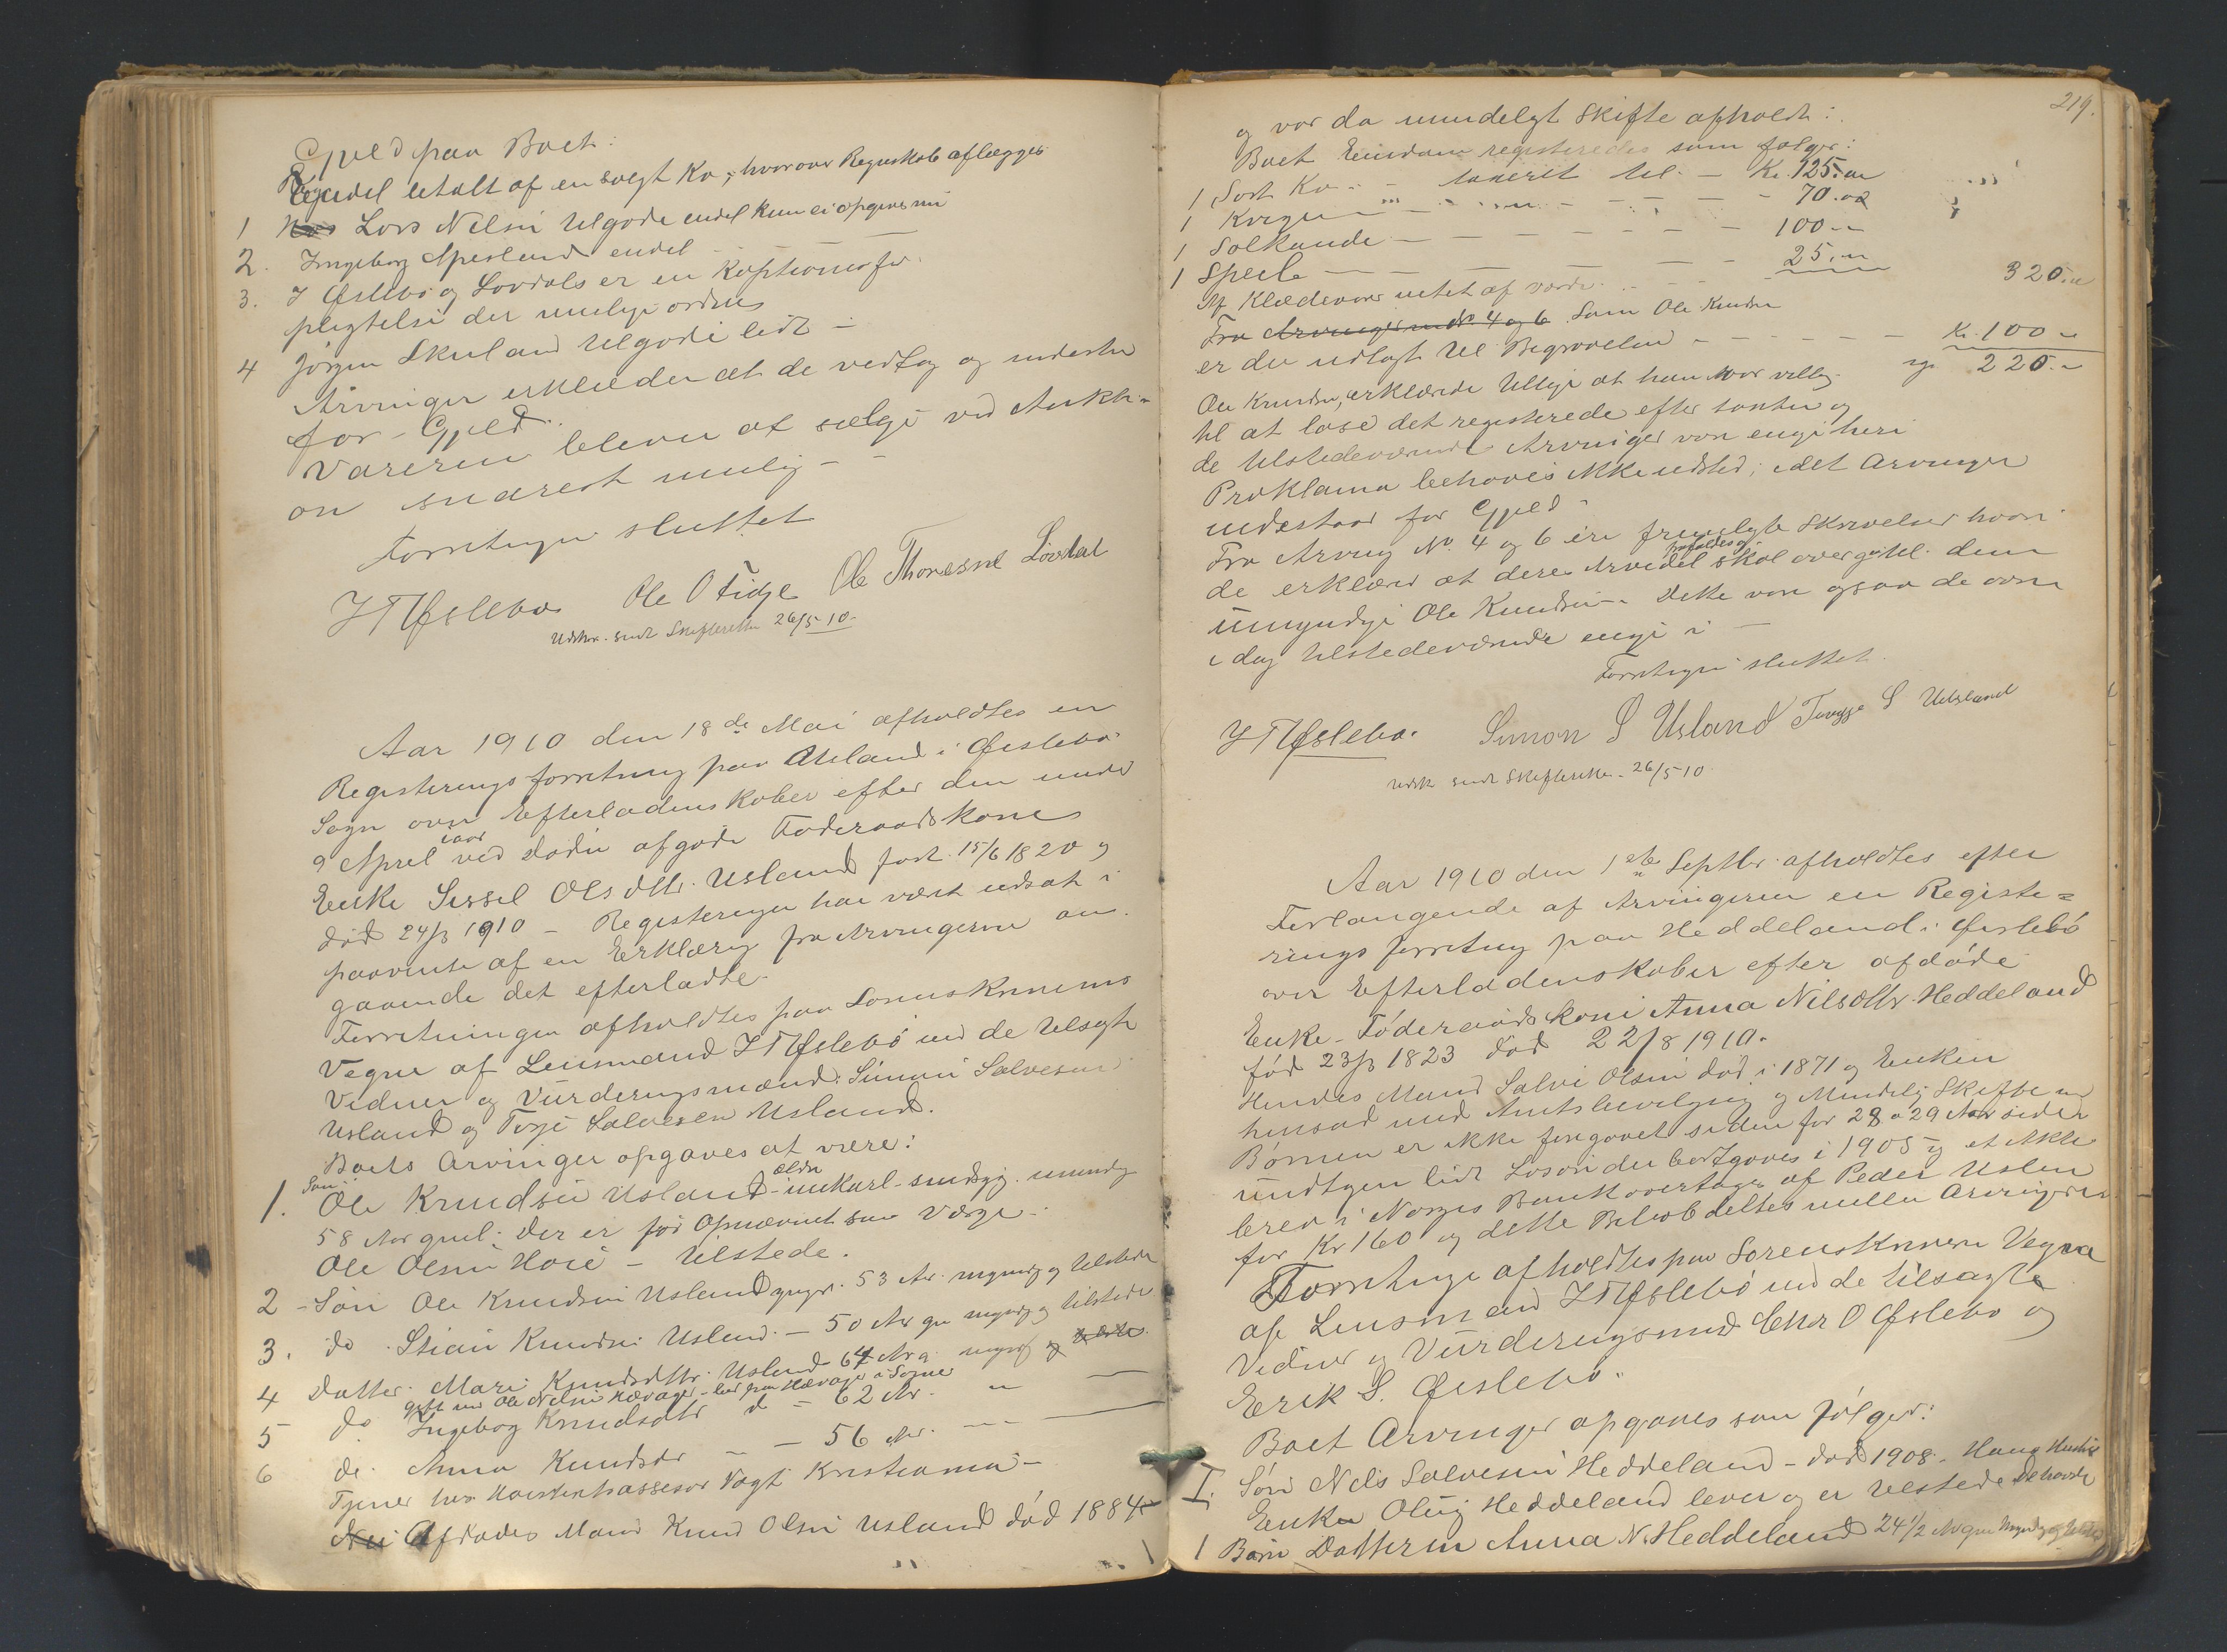 Gjeld paa Boet:
Endel betalt af en solgt Ko, hvorover Regnskab aflægges
1 Lars Nilsen tilgode endel kun ei opgives nu
2. Ingeborg Apesland endel
3. J Øslebø og Løvdals er en Kaptionsfor-
pligtelse der muligens ordnes
4 Jørgen Skuland tilgode lidt –
Arvinger erklærder at de vedtog og indestaa
for Gjeld.
Varerne bleven at sælge ved Auktion
on snarest mulig –
Forretningen sluttet
J T Øslebø Ole O Fidje Ole Thoresne Løvdal
Udskr. sendt Skifteretten 26/5 10.
Aar 1910 den 18de Mai afholdtes en
Registeringsforretning paa Usland i Øislebø
Sogn over Efterladenskaber efter den under
9 April iaar ved Døden afgode Føderaadskone
Enke Sissel Olsdtr. Usland født 15/6 1820 og
død 24/3 1910 – Registeringen har vært udsat i
paavente af en Erklæring fra Arvingerne an-
gaaende det efterladte.
Forretningen afholdtes paa Sorenskriverens
Vegne af Lensmand J T Øslebø med de tilsagte
Vidner og Vurderingsmænd: Simon Salvesen
Usland og Terje Salvesen Usland.
Boets Arvinger opgaves at være:
1. Søn Ole Knudsen Usland ældre unkarl – sindsyg. umyndig
58 Aar gml. Der er før Opnævnt som Værge
Ole Olsen Høie – tilstede.
2 – Søn Ole Knudsen Usland yngre. 53 Aar. myndig og tilstede
3. do Stian Knudsen Usland. – 50 Aar gm myndig og tilstede
4 Datter. Mari Knudsdtr. Usland 64 Ar g. myndig
gift med Ole Nilsen Hævager – bor paa Hævager i Sogne
5 do Ingebog Knudsdtr d – 62 Ar. "
6 do. Anna Knudsdtr – – 56 Ar. –
Tjener hos Høiesteretsassessor Vogt Kristiania –
Afdødes Mand Knud Olsen Usland død 1884
219.
og var da mundeligt Skifte afholdt:
Boet Eiendom registeredes som følger:
1 Sort Ko – taxerit til. – Kr. 125.00
1 Kvige – – – – 70.00
1 Sølkande – – – – 100 –
1 Speil – – – – 25.00 320.00
Af Klædevarer intet af værdi.
Fra Arvingerne No 4 og 6 Søn Ole Knudsen
er der udlagt til Begravelsen – – – Kr. 100 –
220.–
Ole Knudsen, erklærede tillige at han var villig
til at løse det registerede efter taxten og
de tilstedeværende Arvinger var enige heri
Proklama behøves ikke udsted, idet Arvinger
indestaar for Gjeld –
Fra Arving No. 4 og 6 er fremlagte Skrivelser hvori
de erklærer at deres Arvedel skal overgaa til den
umyndige Ole Knudsen. Dette var ogsaa de øvrige
i dag tilstedeværende enige i –
Forretningen sluttet.
J T Øslebø. Simon S Usland Terge S Uusland
Udsk sendt Skifteretten 26/5 10
Aar 1910 den 1ste Septbr. afholdtes efter
Forlangende af Arvingeren en Registe=
rings forretning paa Heddeland i Øislebø
over Efterladenskaber efter afdøde
Enke – Føderaadskone Anna Nilsdtr. Heddeland
født 23/3 1823 død 22/8 1910.
Hendes Mand Salve Olsen død i 1871 og Enken
hensad med Amtsbevilgning og Mindelig Skifte m
Børnen er ikke foregaaet siden for 28 a 29 Aar siden
undtgen lidt Løsøre der bortgaves i 1905 og et Aktie
brev i Norges Bank overtages af Peder Uslen
for Kr 160 og dette Beløb deltes mellem Arvingeren
Forretninge afholdtes paa Sorenskriveren Vegne
af Lensmand J T Øslebø med de tilsagte
Vidner og Vurderingsmænd Chr O Øslebø og
Erik S. Øislebø.
Boet Arvinger opgaves som følger:
I. Søn Nils Salvesen Heddeland – død 1908. Hans Hustru
Enken Olug Heddeland lever og er tilstede De havde
1 Børn Datteren Anna N. Heddeland 24 1/2 Ar gm Myndig og tilstede